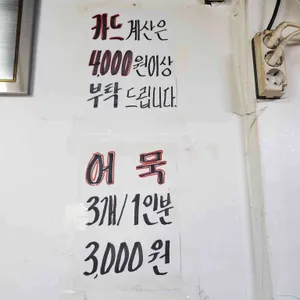 카드 계산은
4,000원이상
부탁드립니다.
어묵
3개/1인분
3,000원